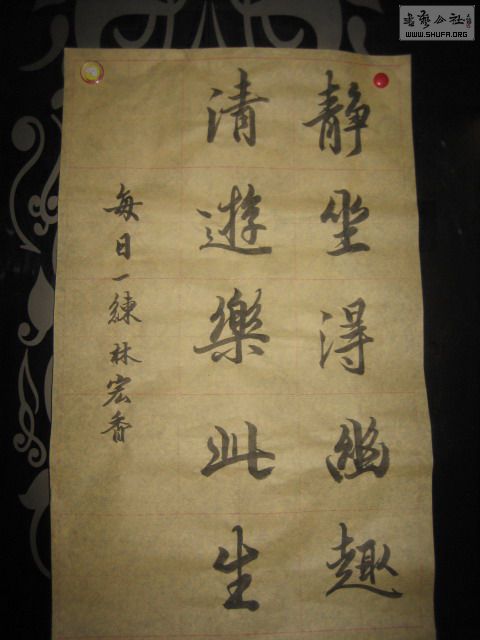 静坐得幽趣
清遊樂此生
每日一練 林宏香
书艺公社
WWW.SHUFA.ORG